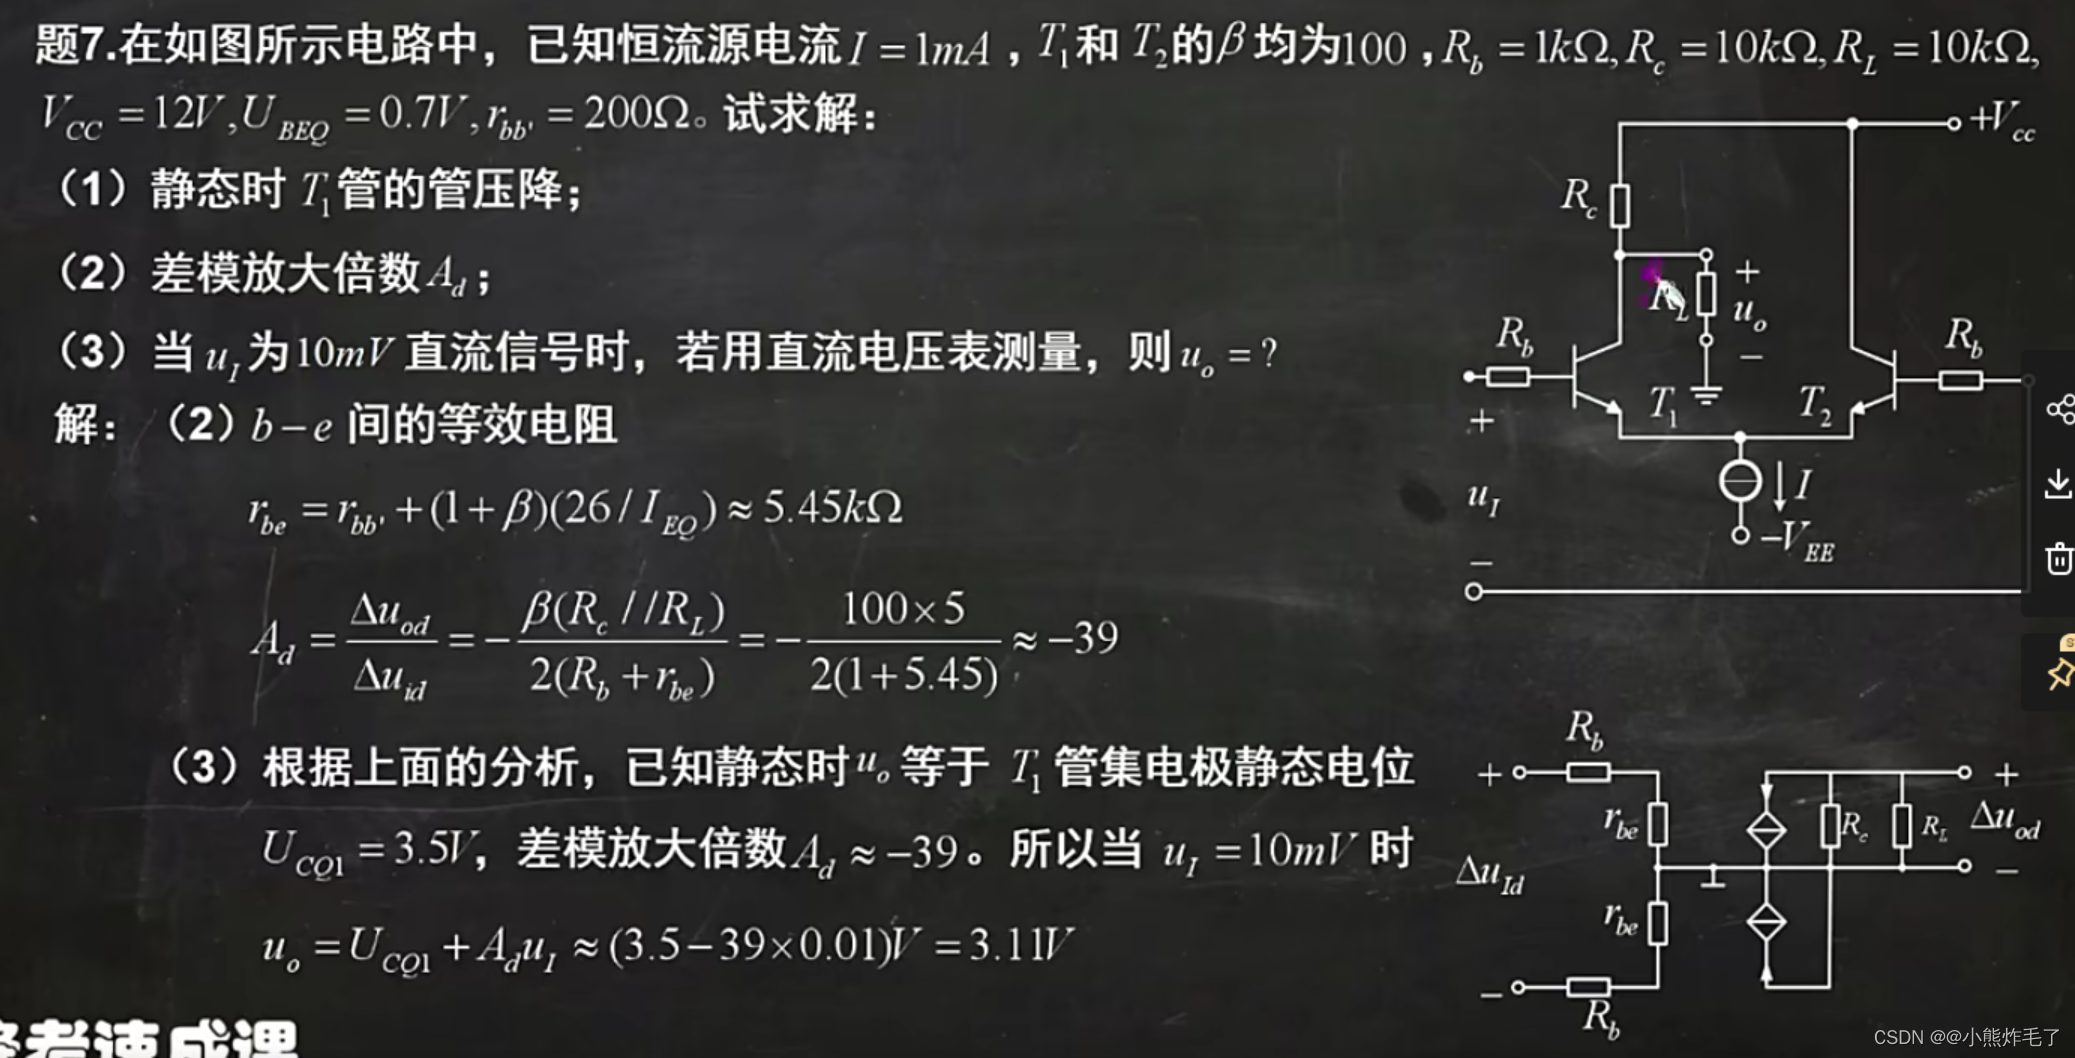 题7.在如图所示电路中，已知恒流源电流 I = 1mA ，T₁和 T₂的β均为100 ，R_b = 1kΩ, R_c = 10kΩ, R_L = 10kΩ,
V_CC = 12V ,U_BEQ = 0.7V ,r_bb' = 200Ω。试求解：
（1）静态时 T₁管的管压降；
（2）差模放大倍数 A_d ；
（3）当 u_I 为10mV 直流信号时，若用直流电压表测量，则 u_o = ?
解：（2）b－e 间的等效电阻
r_be = r_bb' + (1+β)(26 / I_EQ) ≈ 5.45kΩ
A_d = Δu_od / Δu_id = − β(R_c // R_L) / 2(R_b + r_be) = − 100×5 / 2(1+5.45) ≈ −39
（3）根据上面的分析，已知静态时 u_o 等于 T₁ 管集电极静态电位
U_CQ1 = 3.5V，差模放大倍数 A_d ≈ −39 。所以当 u_I = 10mV 时
u_o = U_CQ1 + A_d u_I ≈ (3.5−39×0.01)V = 3.11V
+V_cc
R_c
R_L
+
u_o
−
R_b
R_b
T₁
T₂
+
u_I
−
I
−V_EE
R_b
+
r_be
R_c
R_L
+
Δu_od
−
Δu_Id
r_be
−
R_b
考速成课
CSDN @@小熊炸毛了